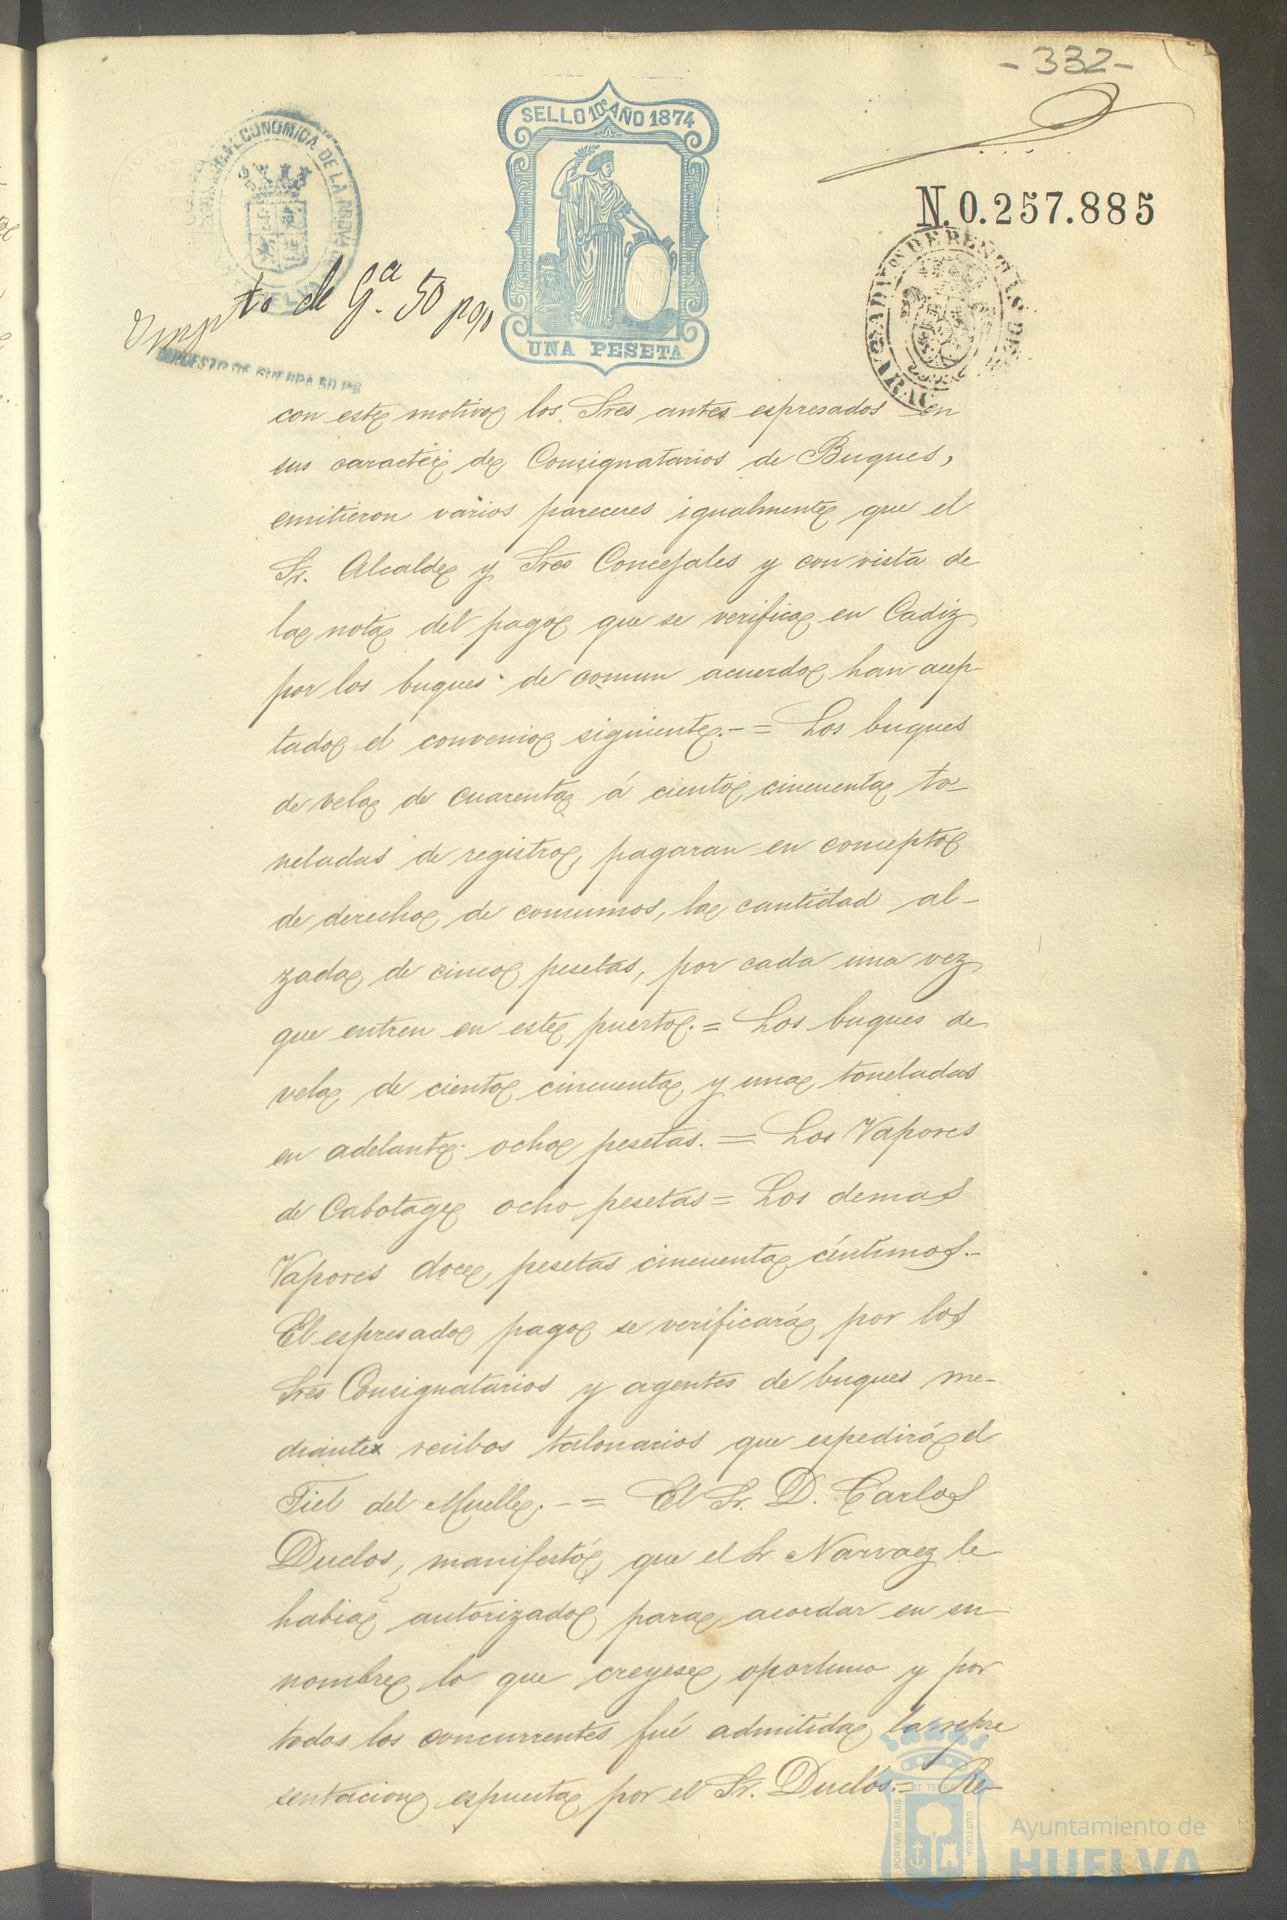 - 332 -
SELLO 10º AÑO 1874
ECONOMICA DE LA
N. 0.257.885
Impto de Gª. 50 p%
UNA PESETA
IMPUESTO DE GUERRA 50 P%
con este motivo los Sres antes espresados en
sus caracter de Consignatarios de Buques,
emitieron varios pareceres igualmente que el
Sr. Alcalde y Sres Concejales y con vista de
la nota del pago que se verifica en Cadiz
por los buques de comun acuerdo han acep-
tado el convenio siguiente.- = Los buques
de vela de cuarenta á ciento cincuenta to-
neladas de registro, pagaran en concepto
de derecho de consumos, la cantidad al-
zada de cinco pesetas, por cada una vez
que entren en este puerto. = Los buques de
vela de ciento cincuenta y una toneladas
en adelante ocho pesetas. = Los Vapores
de Cabotage ocho pesetas = Los demas
Vapores doce pesetas cincuenta céntimos.-
El espresado pago se verificará por los
Sres Consignatarios y agentes de buques me-
diante recibos talonarios que espedirá el
Fiel del Muelle. - = El Sr. D. Carlos
Duclos, manifestó que el Sr Narvaez le
habia autorizado para acordar en su
nombre lo que creyese oportuno y por
todos los concurrentes fué admitida la repre
sentacion espuesta por el Sr. Duclos. = Re-
PORTUS MARIS ET TERRE CUSTODIA
Ayuntamiento de
HUELVA